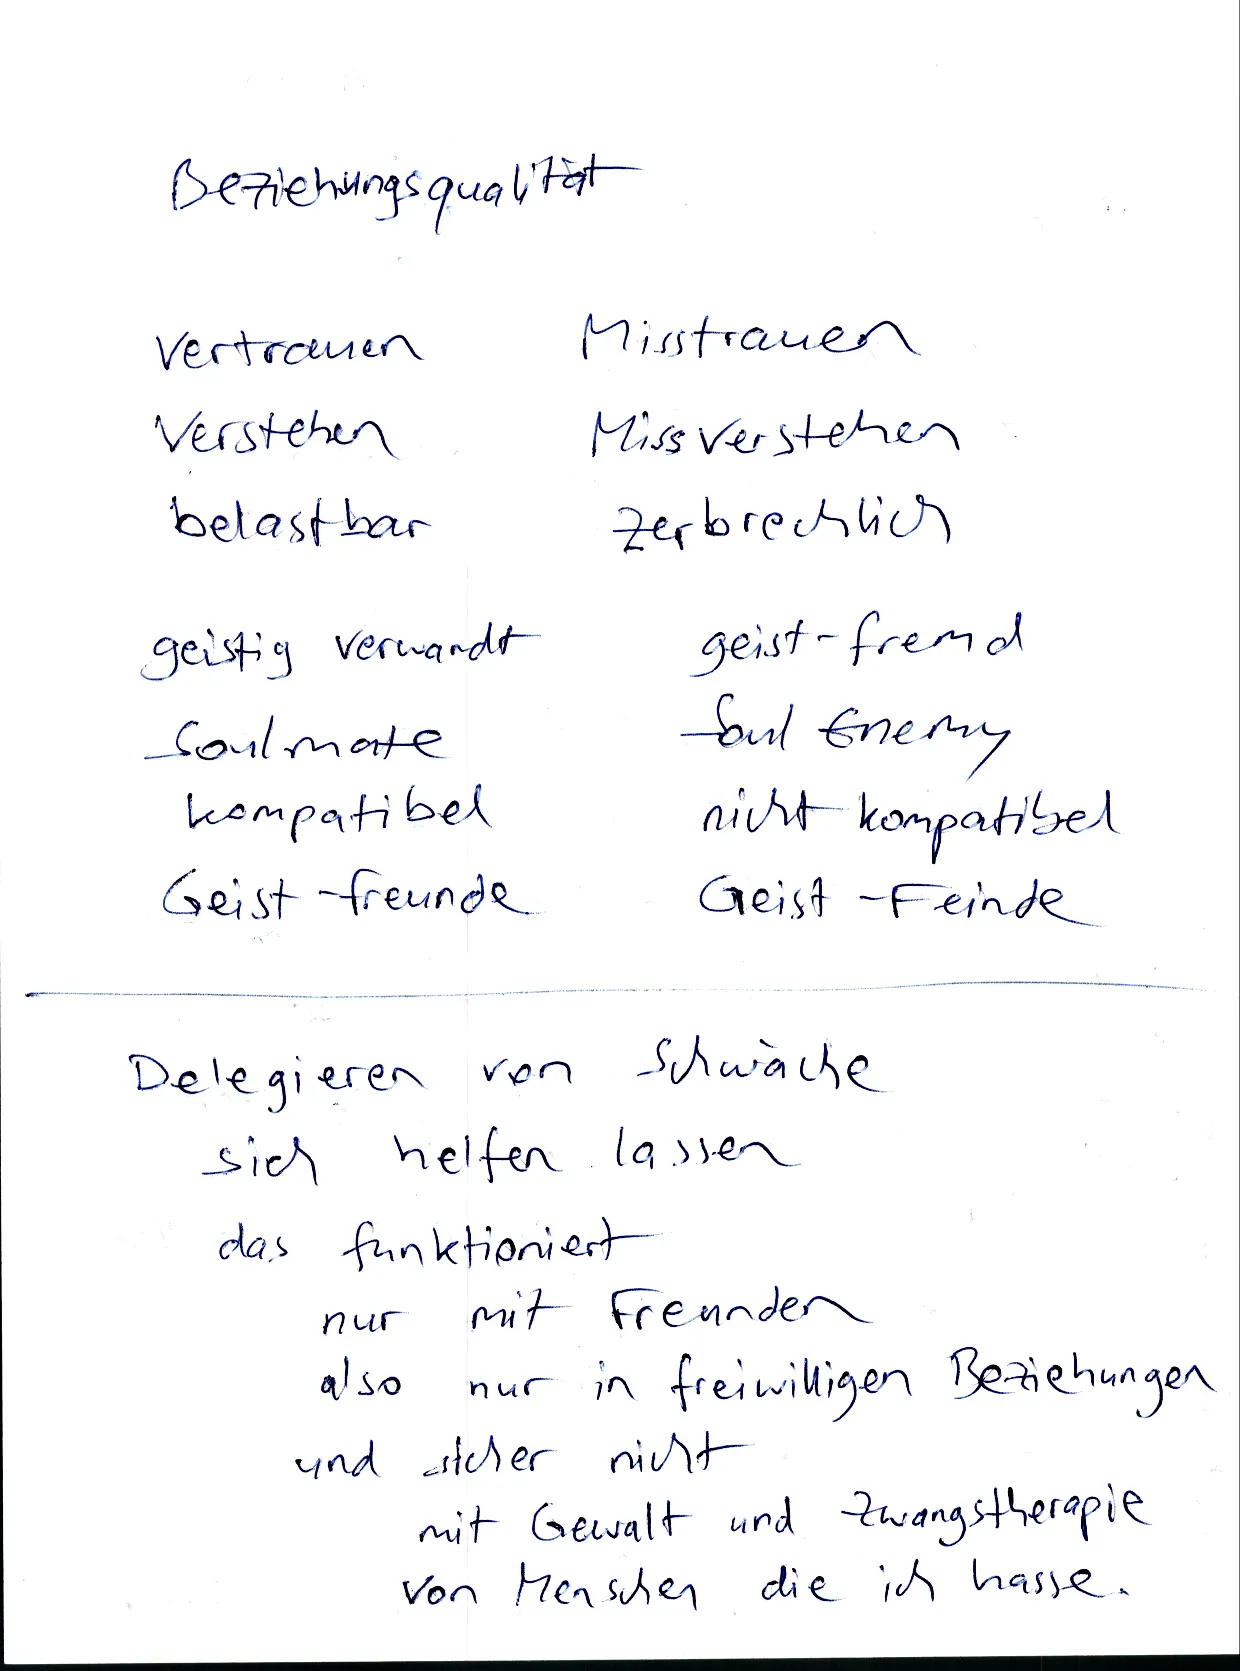 Beziehungsqualität
Vertrauen Misstrauen
Verstehen Missverstehen
belastbar zerbrechlich
geistig verwandt geist-fremd
Soulmate Soul Enemy
kompatibel nicht kompatibel
Geist-freunde Geist-Feinde
Delegieren von Schwäche
sich helfen lassen
das funktioniert
nur mit Freunden
also nur in freiwilligen Beziehungen
und sicher nicht
mit Gewalt und Zwangstherapie
von Menschen die ich hasse.